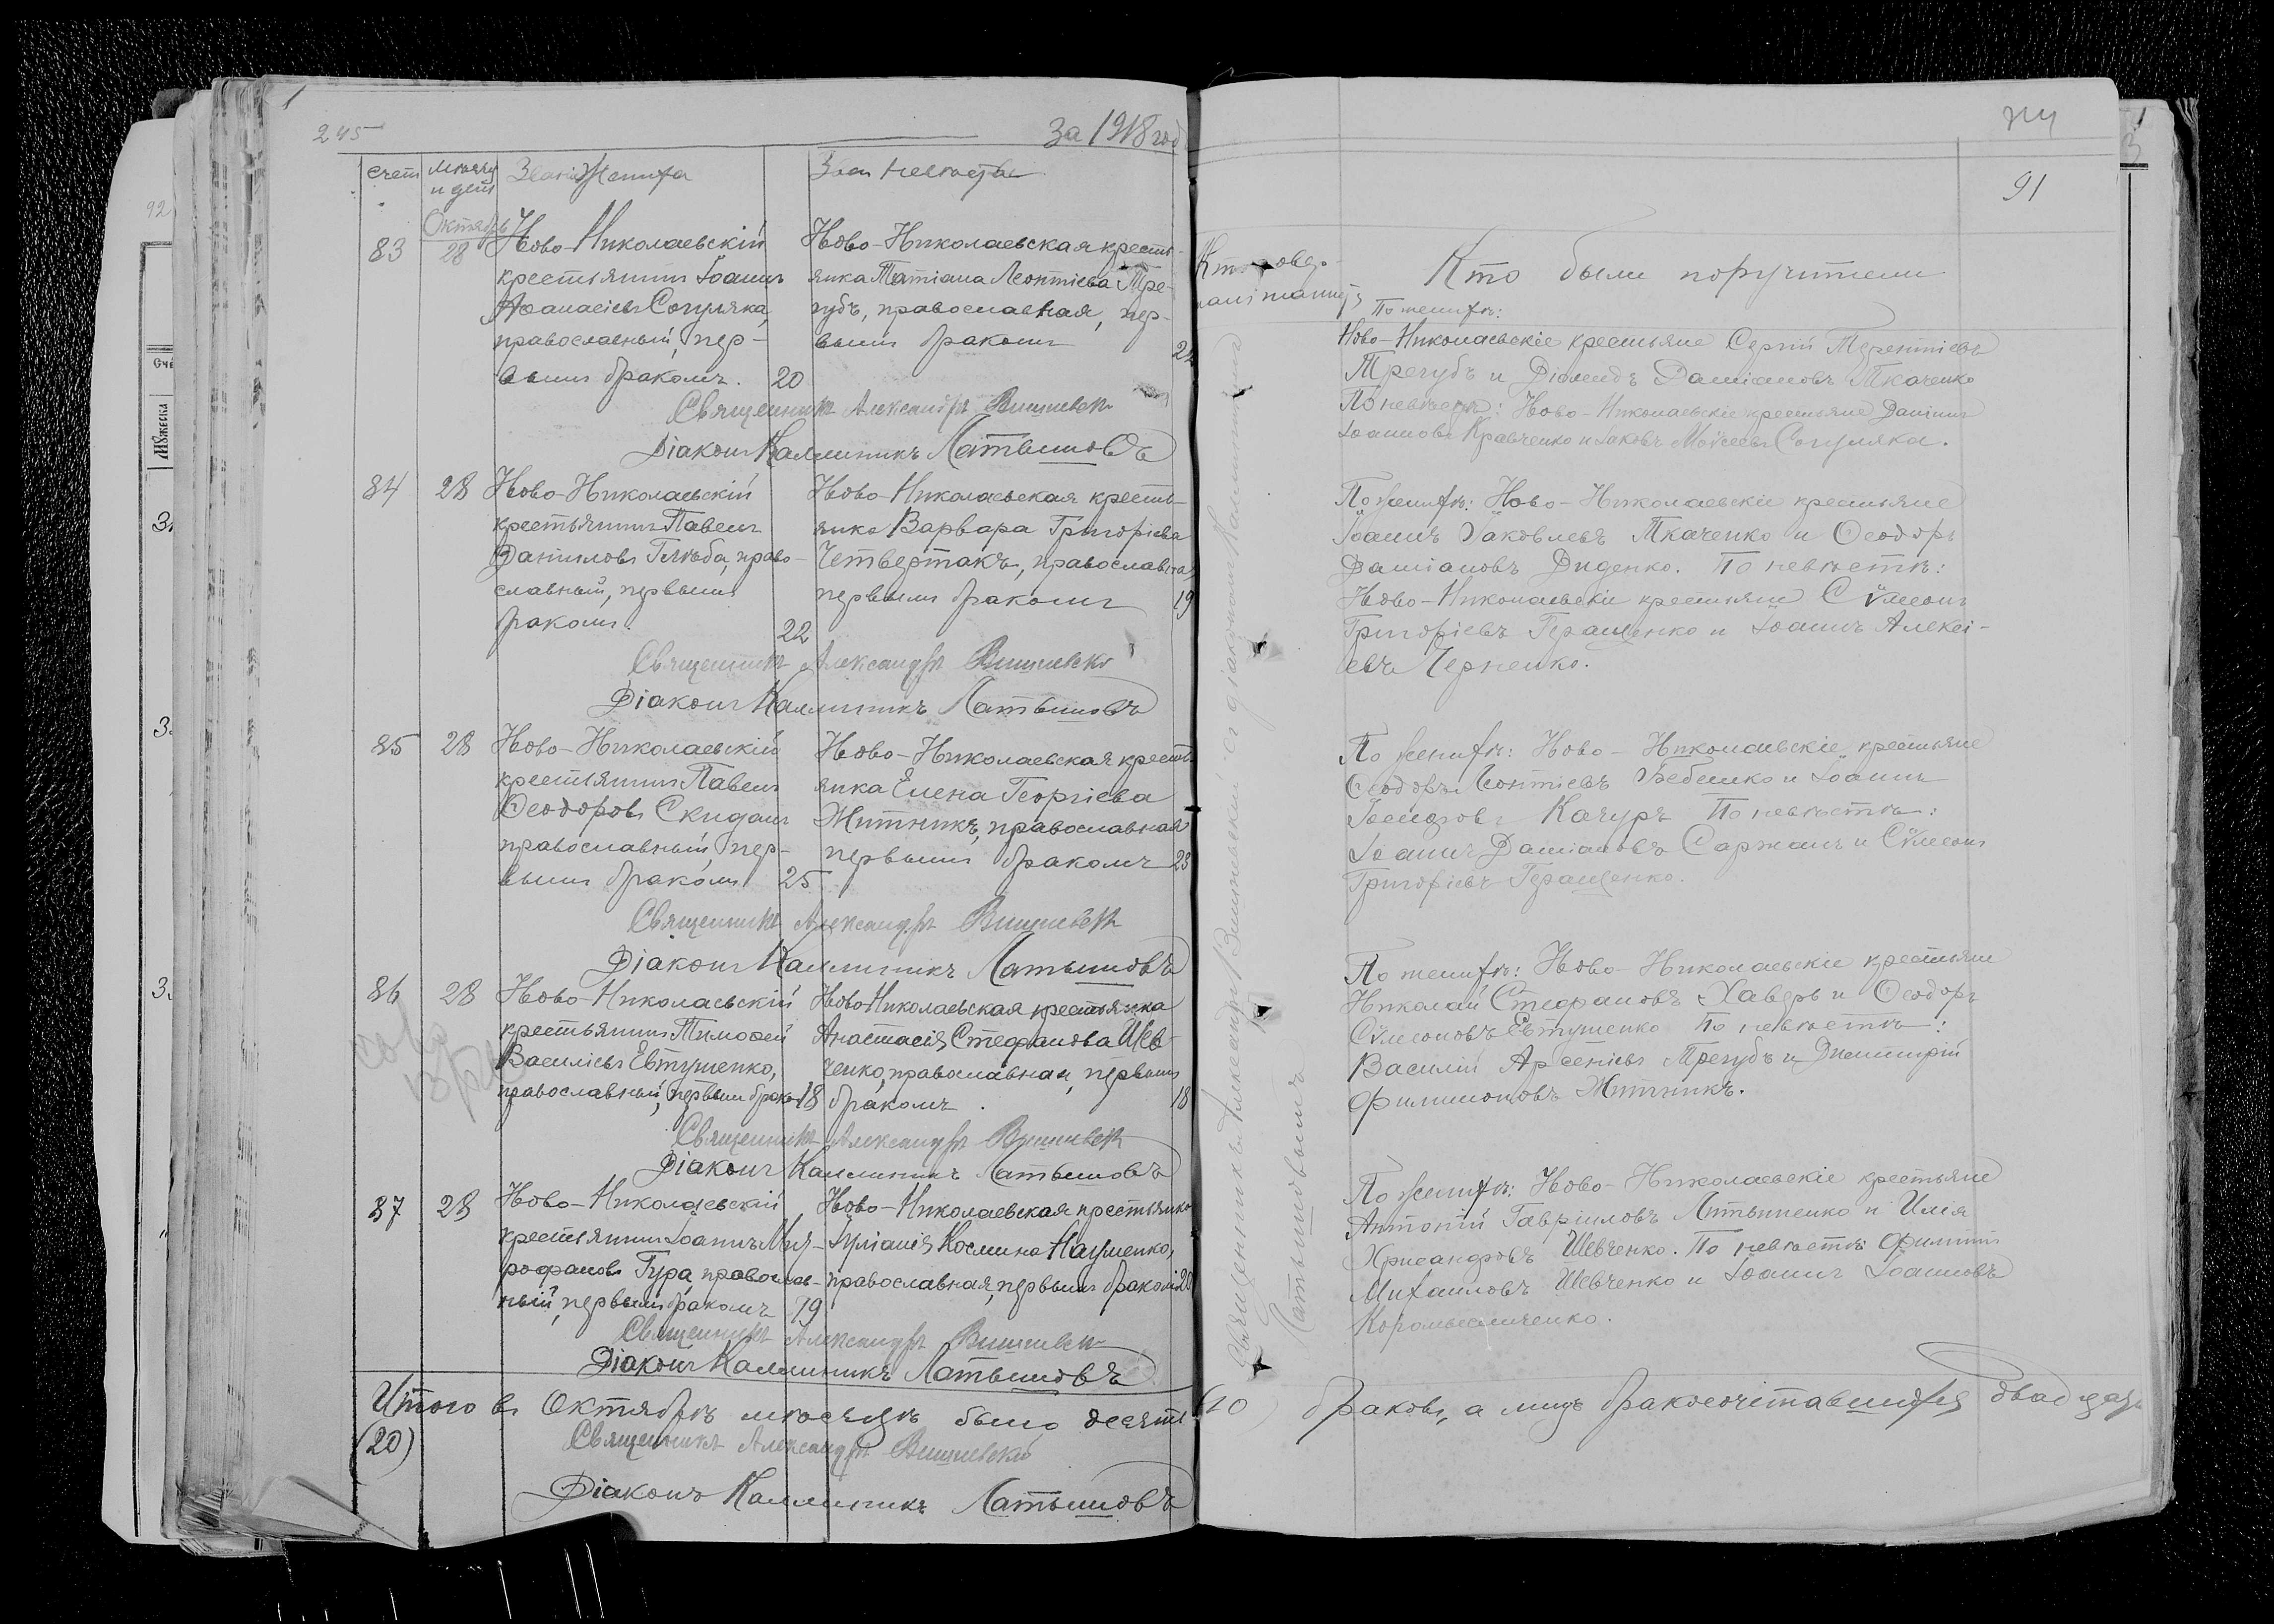 245
За 1918 год
счет
Мѣсяцъ и день
Званіе Жениха
Зван невѣсты
Октябрь
83
28
Ново-Николаевскій
крестьянинъ Іоаннъ
Аѳанасіевъ Согуляка,
православный, пер-
вымъ бракомъ.
20
Ново-Николаевская кресть-
янка Татіана Леонтіева Тре-
губъ, православная, пер-
вымъ бракомъ
Священникъ Александръ Вишневск
Діаконъ Каллиникъ Латышовъ
84
28
Ново-Николаевскій
крестьянинъ Павелъ
Даниловъ Глѣба, право-
славный, первымъ
бракомъ.
22
Ново-Николаевская кресть-
янка Варвара Григоріева
Четвертакъ, православная,
первымъ бракомъ
19
Священникъ Александръ Вишневско
Діаконъ Каллиникъ Латышовъ
85
28
Ново-Николаевскій
крестьянинъ Павелъ
Ѳеодоровъ Скиданъ
православный, пер-
вымъ бракомъ
25
Ново-Николаевская кресть-
янка Елена Георгіева
Житникъ, православная
первымъ бракомъ
23
Священникъ Александръ Вишневск
Діаконъ Каллиникъ Латышовъ
86
28
Ново-Николаевскій
крестьянинъ Тимоѳей
Василіевъ Евтушенко,
православный, первым брако
18
Ново-Николаевская крестьянка
Анастасія Стефанова Шев-
ченко, православная, первымъ
бракомъ.
18
Священникъ Александръ Вишневск
Діаконъ Каллиникъ Латышовъ
87
28
Ново-Николаевскій
крестьянинъ Іоаннъ Мит-
рофановъ Гура, православ-
ный, первымъ бракомъ
19
Ново-Николаевская крестьянка
Іуліанія Космина Науменко,
православная, первымъ браком
20
Священникъ Александръ Вишневск
Діаконъ Каллиникъ Латышовъ
Итого въ Октябрѣ мѣсяцѣ было десять (10) браковъ, а лицъ бракосочетавшихся двадцать
(20)
Священникъ Александръ Вишневскій
Діаконъ Каллиникъ Латышовъ
91
Кто совер-
Священникъ Александръ Вишневскій съ діакономъ Каллиникомъ
Латышовымъ
Кто были поручители
По женихѣ:
Ново-Николаевскіе крестьяне Сергій Терентіевъ
Трегубъ и Діомидъ Даміановъ Ткаченко
По невѣстѣ: Ново-Николаевскіе крестьяне Даніилъ
Іоанновъ Кравченко и Іаковъ Моѵсеевъ Согуляка.
По женихѣ: Ново-Николаевскіе крестьяне
Іоаннъ Іаковлевъ Ткаченко и Ѳеодоръ
Даміановъ Диденко. По невѣстѣ:
Ново-Николаевскіе крестьяне Сѵмеонъ
Григоріевъ Геращенко и Іоаннъ Алексі-
евъ Черненко.
По женихѣ: Ново-Николаевскіе крестьяне
Ѳеодоръ Леонтіевъ Бебешко и Іоаннъ
Качуръ По невѣстѣ:
Іоаннъ Даміановъ Саржанъ и Сѵмеонъ
Григоріевъ Геращенко.
По женихѣ: Ново-Николаевскіе крестьяне
Николай Стефановъ Хаверь и Ѳеодоръ
Сѵмеоновъ Евтушенко По невѣстѣ:
Василій Арсеніевъ Трегубъ и Димитрій
Филимоновъ Житникъ.
По женихѣ: Ново-Николаевскіе крестьяне
Антоній Гавріиловъ Литвиненко и Илія
Хрисанфовъ Шевченко. По невѣстѣ Филиппъ
Михаиловъ Шевченко и Іоаннъ Іоанновъ
Коромысличенко.